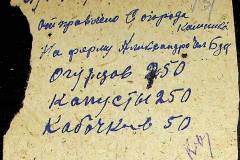 отправлено с огорода
На ферму Александро
Огурцов 250
Капусты 250
Кабочков 50